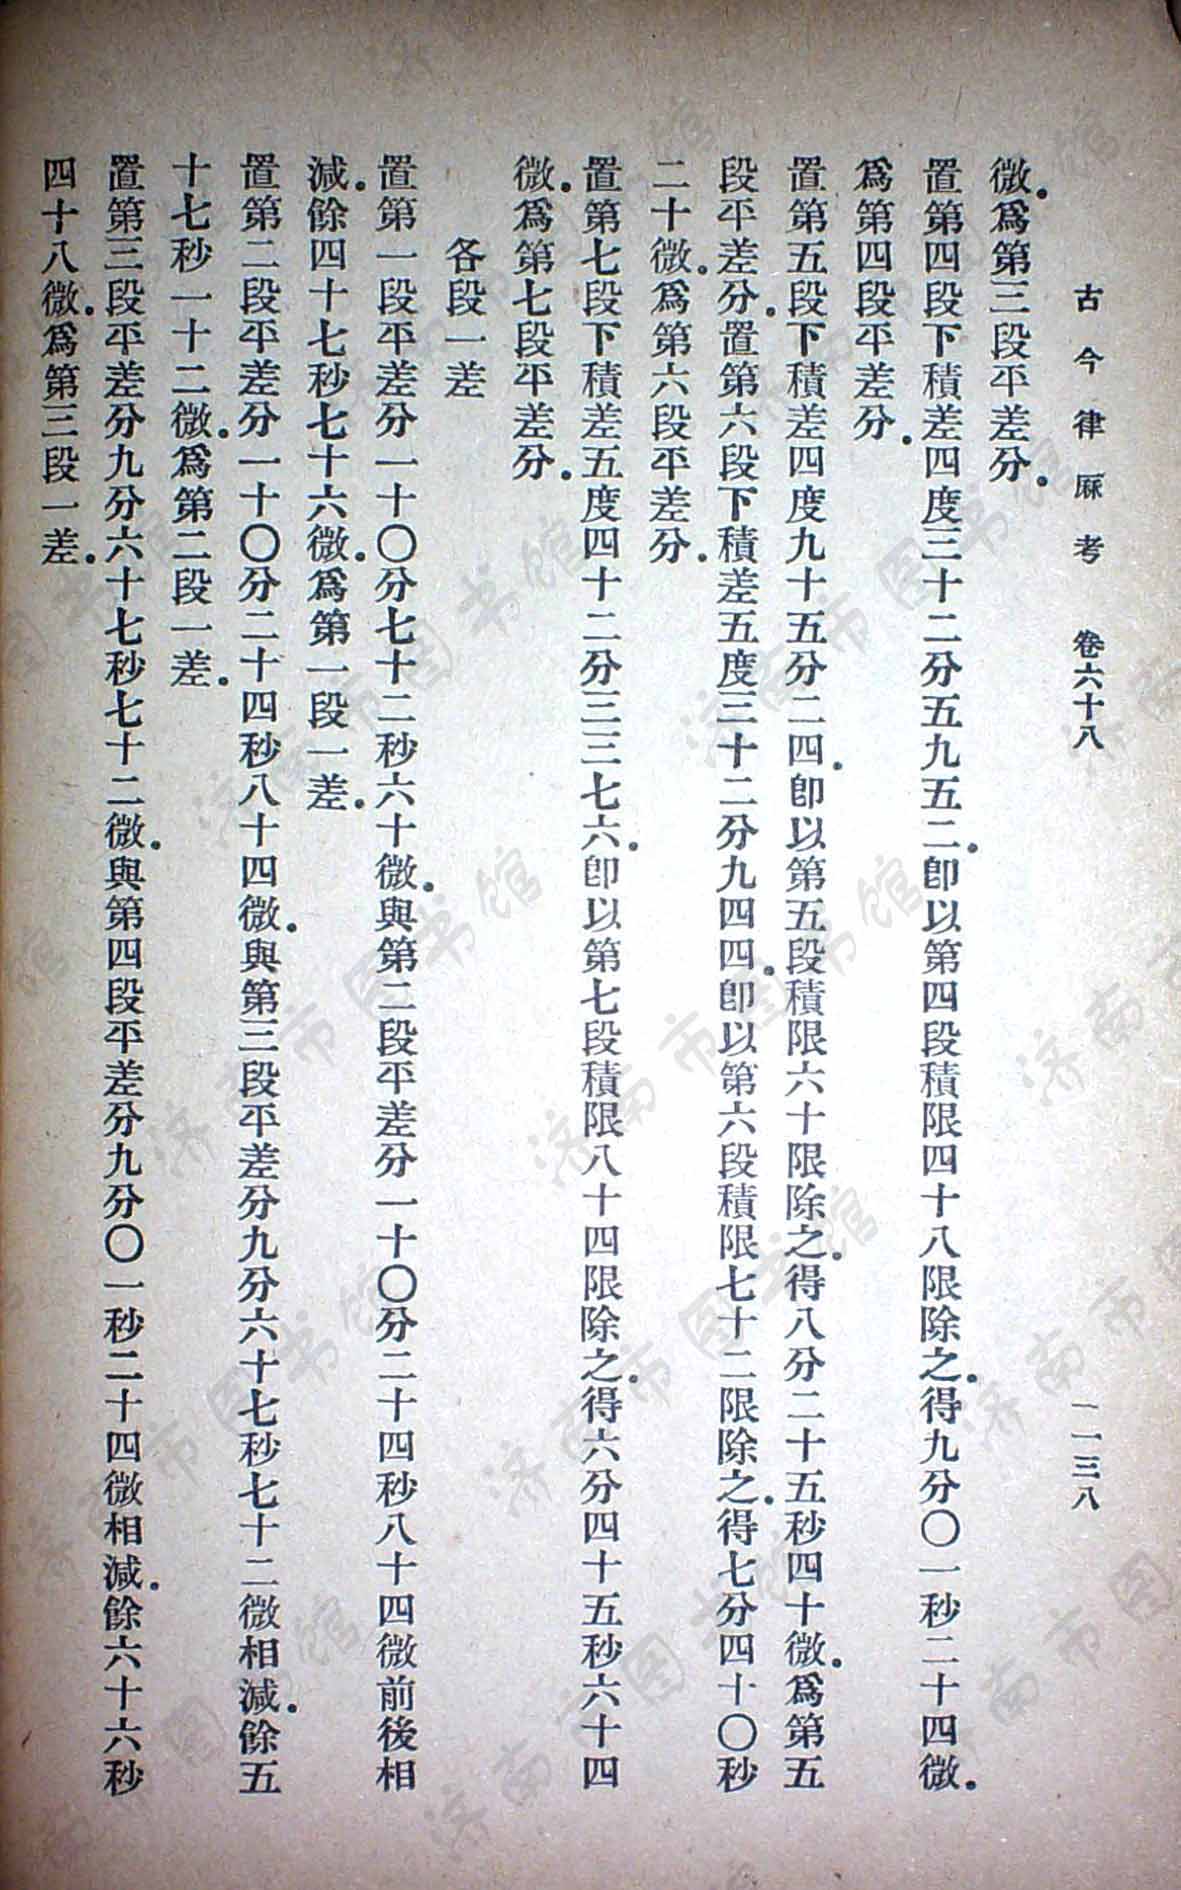 古今律厤考 卷六十八 一一三八
微。爲第三段平差分。
置第四段下積差四度三十二分五九五二。卽以第四段積限四十八限除之。得九分〇一秒二十四微。
爲第四段平差分。
置第五段下積差四度九十五分二四。卽以第五段積限六十限除之。得八分二十五秒四十微。爲第五
段平差分。置第六段下積差五度三十二分九四四。卽以第六段積限七十二限除之。得七分四十〇秒
二十微。爲第六段平差分。
置第七段下積差五度四十二分三三七六。卽以第七段積限八十四限除之。得六分四十五秒六十四
微。爲第七段平差分。
各段一差
置第一段平差分一十〇分七十二秒六十微。與第二段平差分一十〇分二十四秒八十四微前後相
減。餘四十七秒七十六微。爲第一段一差。
置第二段平差分一十〇分二十四秒八十四微。與第三段平差分九分六十七秒七十二微相減。餘五
十七秒一十二微。爲第二段一差。
置第三段平差分九分六十七秒七十二微。與第四段平差分九分〇一秒二十四微相減。餘六十六秒
四十八微。爲第三段一差。
济南市图书馆